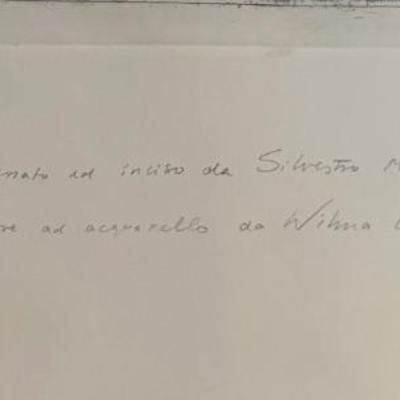 ed inciso da Silvestro
ad acquarello da Wilma